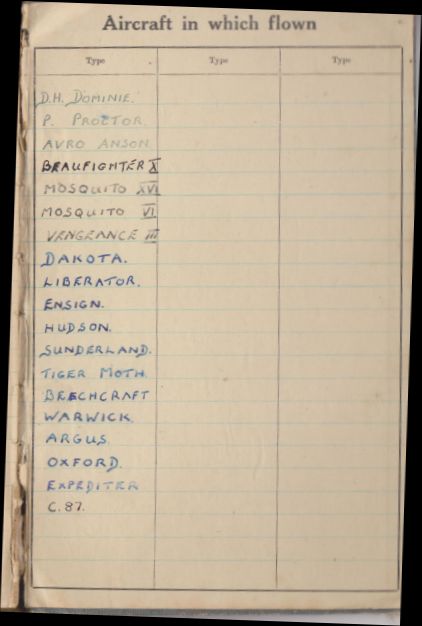 Aircraft in which flown
Type Type Type
D.H. DOMINIE.
P. PROCTOR.
AVRO ANSON
BEAUFIGHTER X
MOSQUITO XVI
MOSQUITO VI
VENGEANCE III
DAKOTA.
LIBERATOR.
ENSIGN.
HUDSON.
SUNDERLAND.
TIGER MOTH.
BEECHCRAFT
WARWICK.
ARGUS.
OXFORD.
EXPEDITER
C.87.